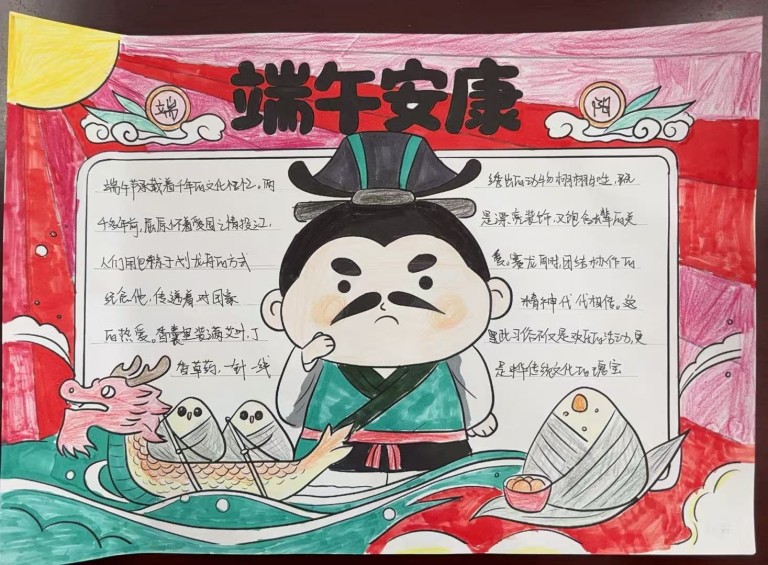 端午安康
端
阳
端午节承载着千年的文化信忆。两
千多年前,屈原怀着爱国之情投江,
人们用包粽子划龙舟的方式
纪念他,传递着对国家
的热爱。香囊里装满艾叶、丁
香草药,一针一线
绣出的动物栩栩如生,既
是漂亮装饰,又饱含长辈的关
爱。赛龙舟时,团结协作的
精神代代相传。这
些习俗不仅是欢乐的活动,更
是中华传统文化的瑰宝